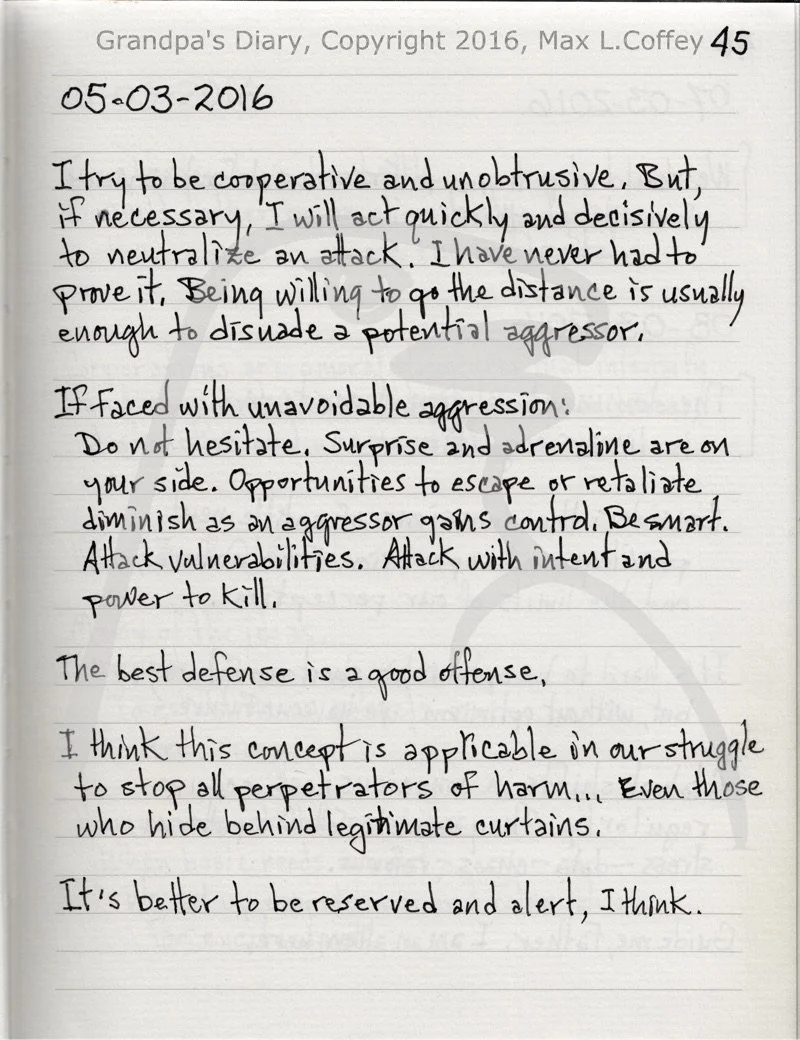 Grandpa's Diary, Copyright 2016, Max L.Coffey 45
05-03-2016
I try to be cooperative and unobtrusive. But,
if necessary, I will act quickly and decisively
to neutralize an attack. I have never had to
prove it. Being willing to go the distance is usually
enough to disuade a potential aggressor.
If faced with unavoidable aggression:
Do not hesitate. Surprise and adrenaline are on
your side. Opportunities to escape or retaliate
diminish as an aggressor gains control. Be smart.
Attack vulnerabilities. Attack with intent and
power to kill.
The best defense is a good offense.
I think this concept is applicable in our struggle
to stop all perpetrators of harm... Even those
who hide behind legitimate curtains.
It's better to be reserved and alert, I think.